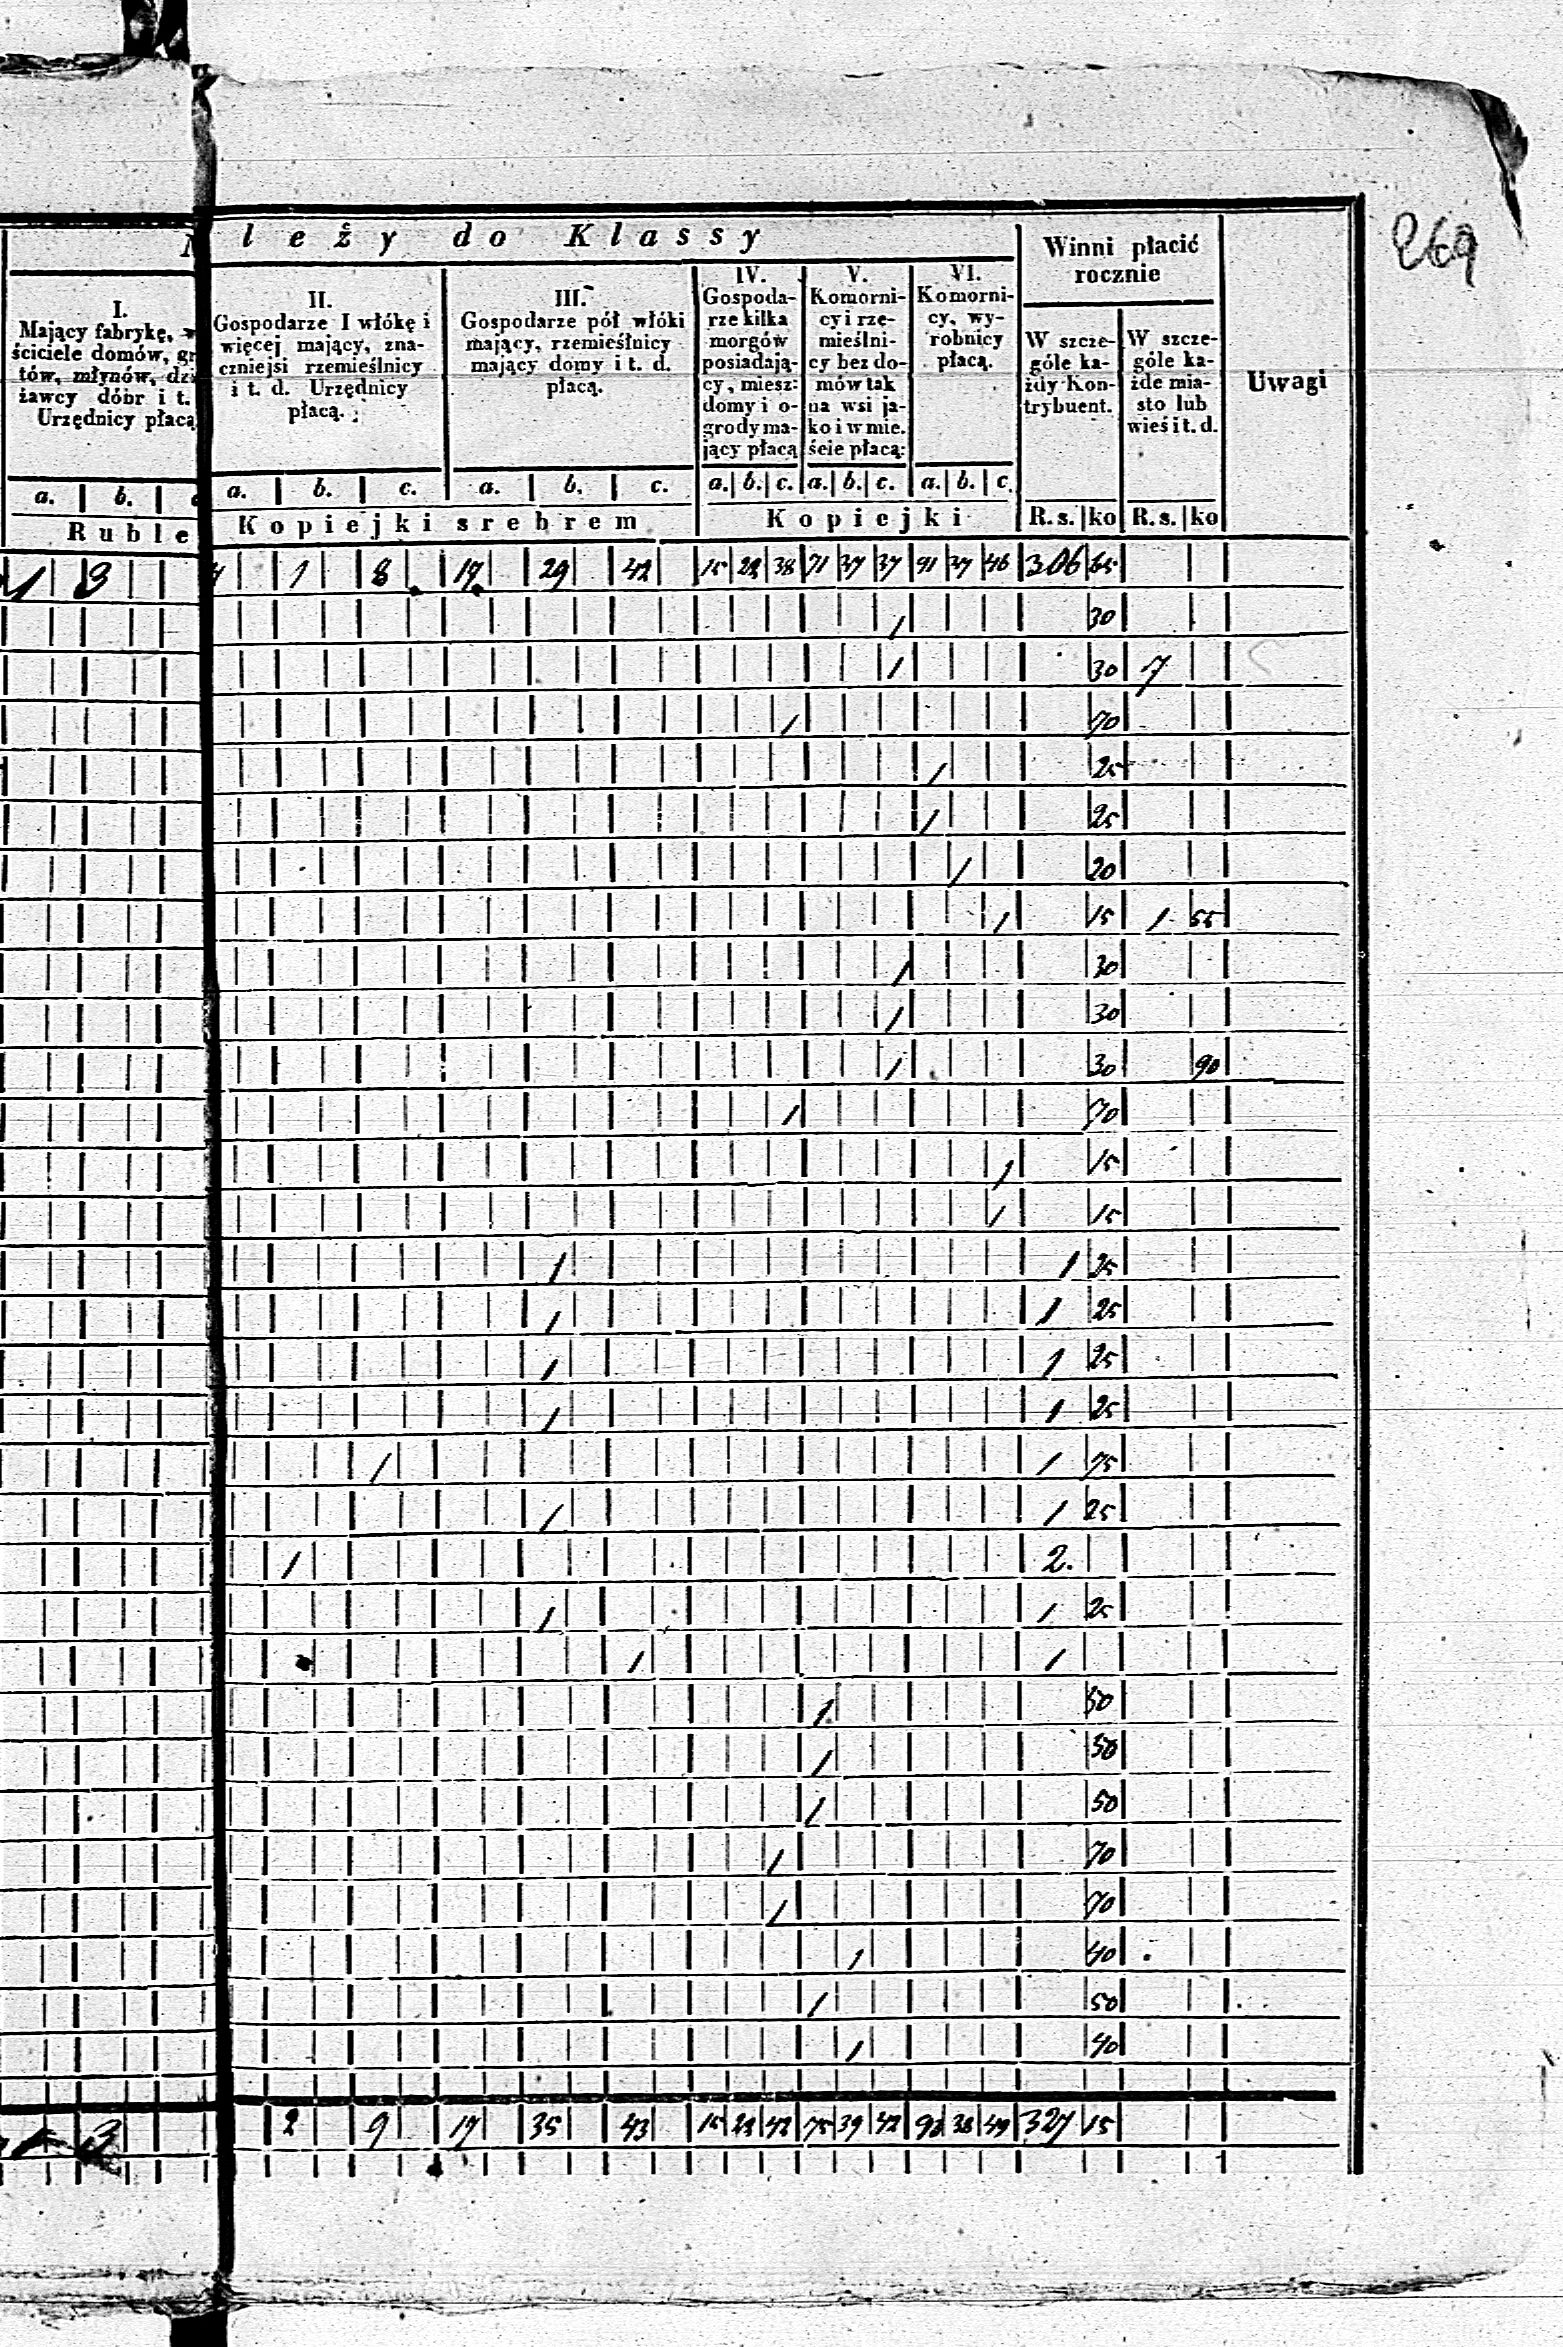 269
leży do Klassy
Winni płacić
rocznie
Uwagi
I.
Mający fabrykę,
ściciele domów, gr
tów, młynów, dzi
żawcy dóbr i t.
Urzędnicy płacą
II.
Gospodarze I włókę i
więcej mający, zna-
czniejsi rzemieślnicy
i t. d. Urzędnicy
płacą.
III.
Gospodarze pół włóki
mający, rzemieślnicy
mający domy i t. d.
płacą.
IV.
Gospoda-
rze kilka
morgów
posiadają-
cy, miesz:
domy i o-
grody ma-
jący płacą
V.
Komorni-
cy i rze-
mieślni-
cy bez do-
mów tak
na wsi ja-
ko i w mie.
ście płacą:
VI.
Komorni-
cy, wy-
robnicy
płacą.
W szcze-
góle ka-
żdy Kon-
trybuent.
W szcze-
góle ka-
żde mia-
sto lub
wieś i t. d.
a. b. a. b. c. a. b. c. a. b. c. a. b. c. a. b. c.
Ruble Kopiejki srebrem Kopiejki R.s. ko R.s. ko
1 3 1 8 17 29 42 15 28 38 71 37 37 91 37 46 306 65
1 30
1 30 7
1 70
1 25
1 25
1 20
1 15 1 55
1 30
1 30
1 30 90
1 70
1 15
1 15
1 1 25
1 1 25
1 1 25
1 1 25
1 1 75
1 1 25
1 2.
1 1 25
1 1
1 50
1 50
1 50
1 70
1 70
1 40
1 50
1 40
3 2 9 17 35 43 15 28 42 75 39 42 93 38 49 327 15